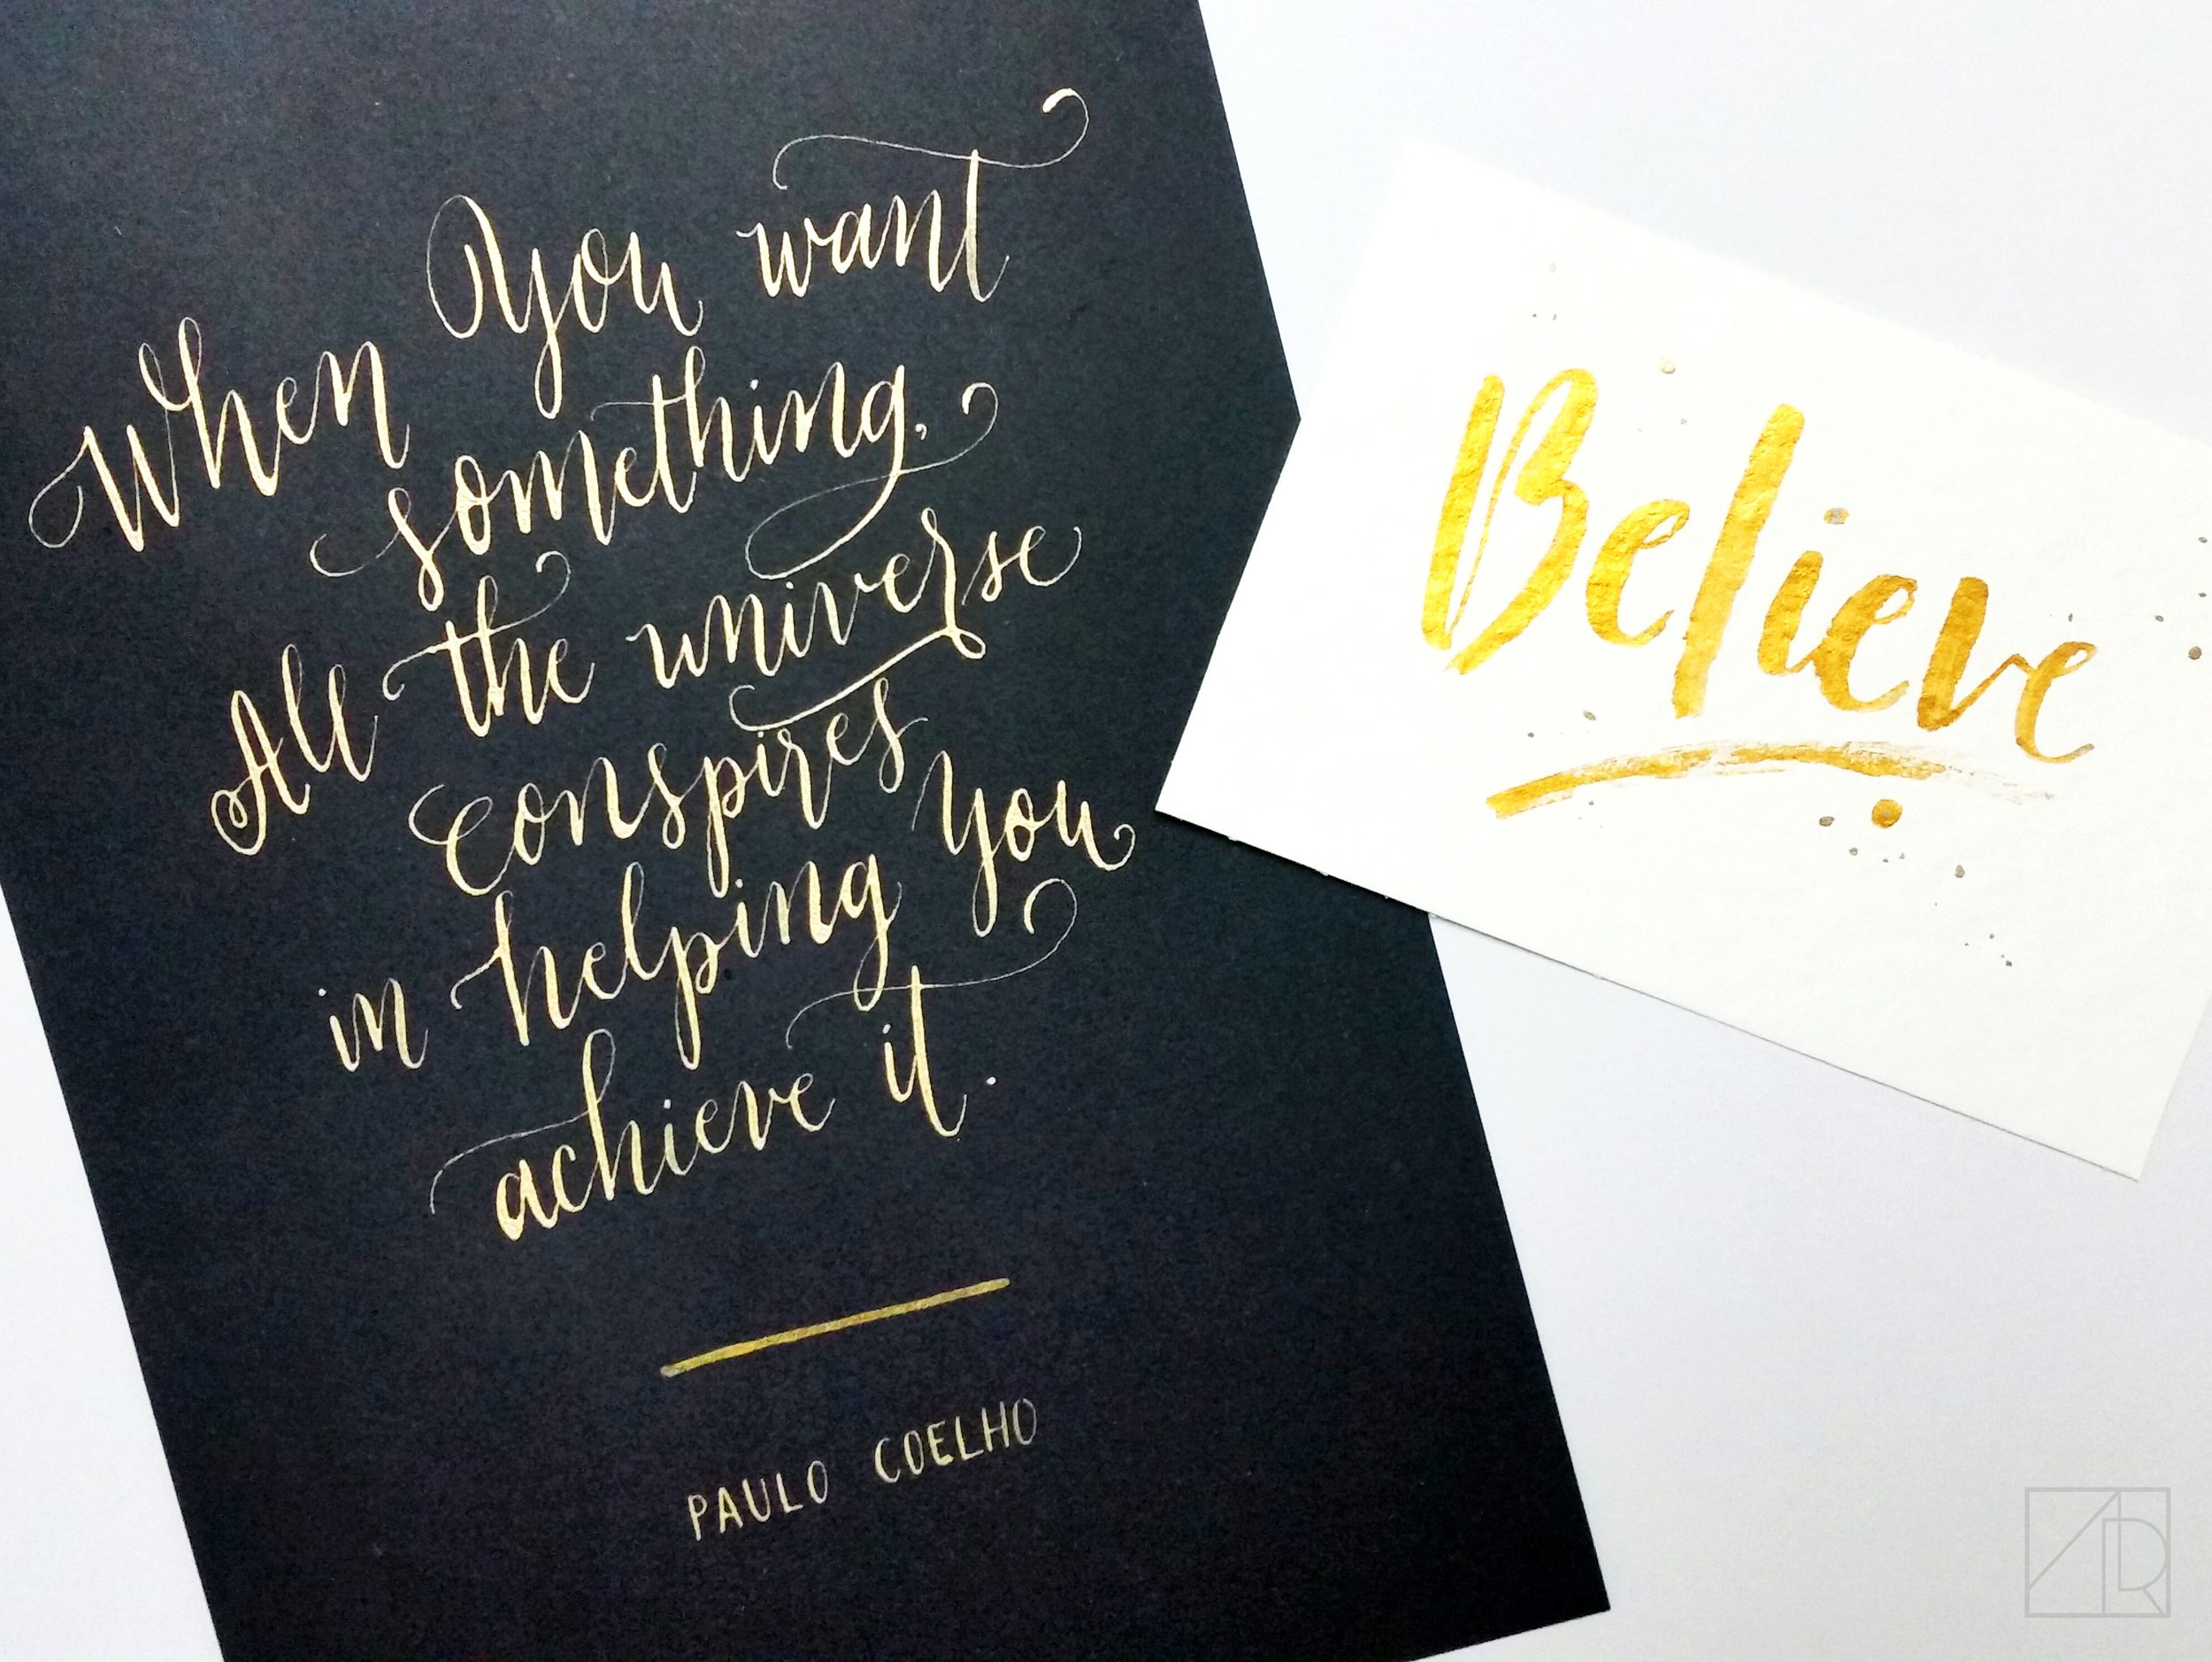 When you want
something,
All the universe
conspires
in helping you
achieve it.
PAULO COELHO
Believe